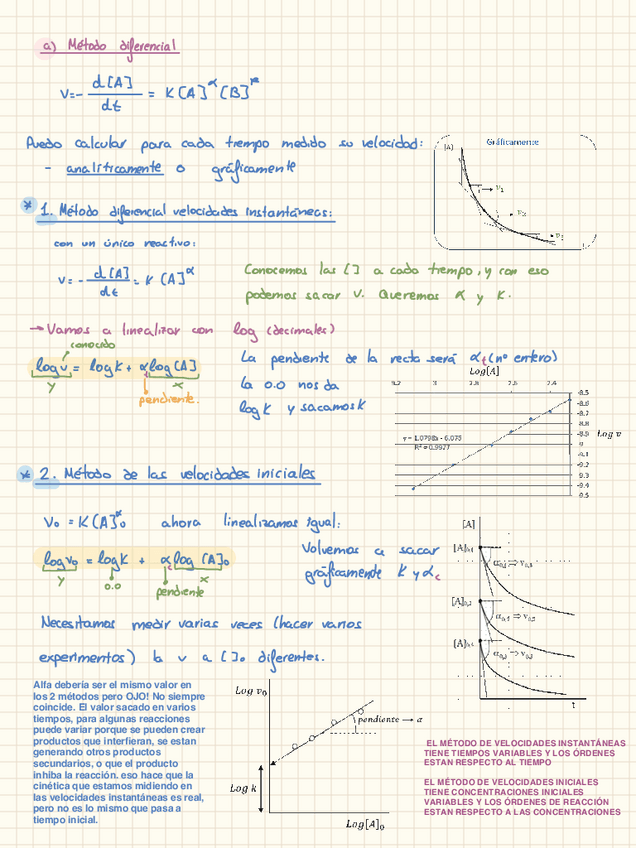 a) Método diferencial
v = - d[A] / dt = K [A]^α [B]^β
Puedo calcular para cada tiempo medido su velocidad:
- analíticamente o gráficamente
Gráficamente
[A]
v₁
v₂
t
* 1. Método diferencial velocidades instantáneas:
con un único reactivo:
v = - d[A] / dt = K [A]^α
Conocemos las [ ] a cada tiempo, y con eso
podemos sacar v. Queremos α y K.
→ Vamos a linealizar con log (decimales)
conocido
log v = log K + α log [A]
y
x
pendiente.
La pendiente de la recta será α (nº entero)
la o.o nos da
log K y sacamos K
Log[A]
3.2 3 2.8 2.6 2.4
-8.5
-8.6
-8.7
-8.8
-8.9
-9
-9.1
-9.2
-9.3
-9.4
-9.5
Log v
y = 1.0798x - 6.075
R² = 0.9927
* 2. Método de las velocidades iniciales
v₀ = K [A]₀^α ahora linealizamos igual:
log v₀ = log K + α log [A]₀
y
o.o
pendiente
x
Volvemos a sacar
gráficamente K y α
[A]
[A]₀,₁
α₀,₁ ⇒ v₀,₁
[A]₀,₂
α₀,₂ ⇒ v₀,₂
[A]₀,₃
α₀,₃ ⇒ v₀,₃
t
Necesitamos medir varias veces (hacer varios
experimentos) la v a [ ]₀ diferentes.
Alfa debería ser el mismo valor en
los 2 métodos pero OJO! No siempre
coincide. El valor sacado en varios
tiempos, para algunas reacciones
puede variar porque se pueden crear
productos que interfieran, se estan
generando otros productos
secundarios, o que el producto
inhiba la reacción. eso hace que la
cinética que estamos midiendo en
las velocidades instantáneas es real,
pero no es lo mismo que pasa a
tiempo inicial.
Log v₀
pendiente → α
Log k
Log[A]₀
EL MÉTODO DE VELOCIDADES INSTANTÁNEAS
TIENE TIEMPOS VARIABLES Y LOS ÓRDENES
ESTAN RESPECTO AL TIEMPO
EL MÉTODO DE VELOCIDADES INICIALES
TIENE CONCENTRACIONES INICIALES
VARIABLES Y LOS ÓRDENES DE REACCIÓN
ESTAN RESPECTO A LAS CONCENTRACIONES